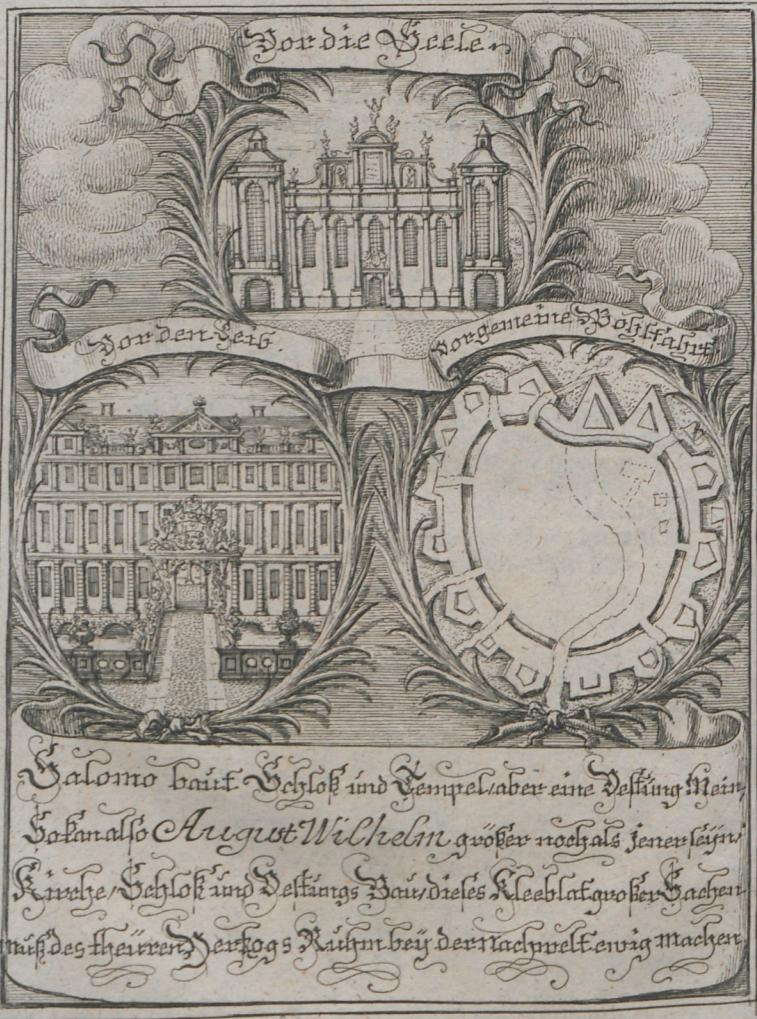 Vor die Seele.
Vor den Leib.
Vor gemeine Wohlfahrt
Salomo baut Schloß und Tempel/ aber eine Vestung Nein,
So kan also August Wilhelm größer noch als jener seyn/
Kirche/ Schloß und Vestungs Bau/ dieses Kleeblat großer Sachen
muß des theüren Hertzogs Ruhm beÿ der nachwelt ewig machen